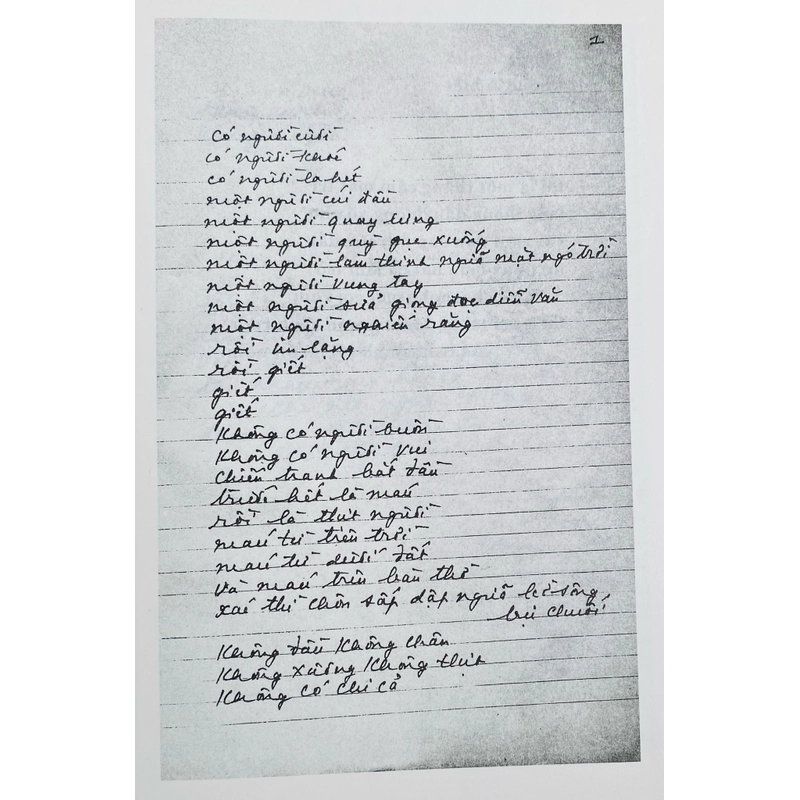 1
có người cười
có người khóc
có người la hét
một người cúi đầu
một người quay lưng
một người quỳ gục xuống
một người làm thinh ngửa mặt ngó trời
một người vung tay
một người sửa giọng đọc diễn văn
một người nghiến răng
rồi im lặng
rồi giết
giết
giết
Không có người buồn
Không có người vui
chiến tranh bắt đầu
trước hết là máu
rồi là thịt người
máu từ trên trời
máu từ dưới đất
và máu trên bàn thờ
xác thì chôn sấp dập ngửa bờ sông
bụi chuối
Không đầu Không chân
Không xương Không thịt
Không có chi cả